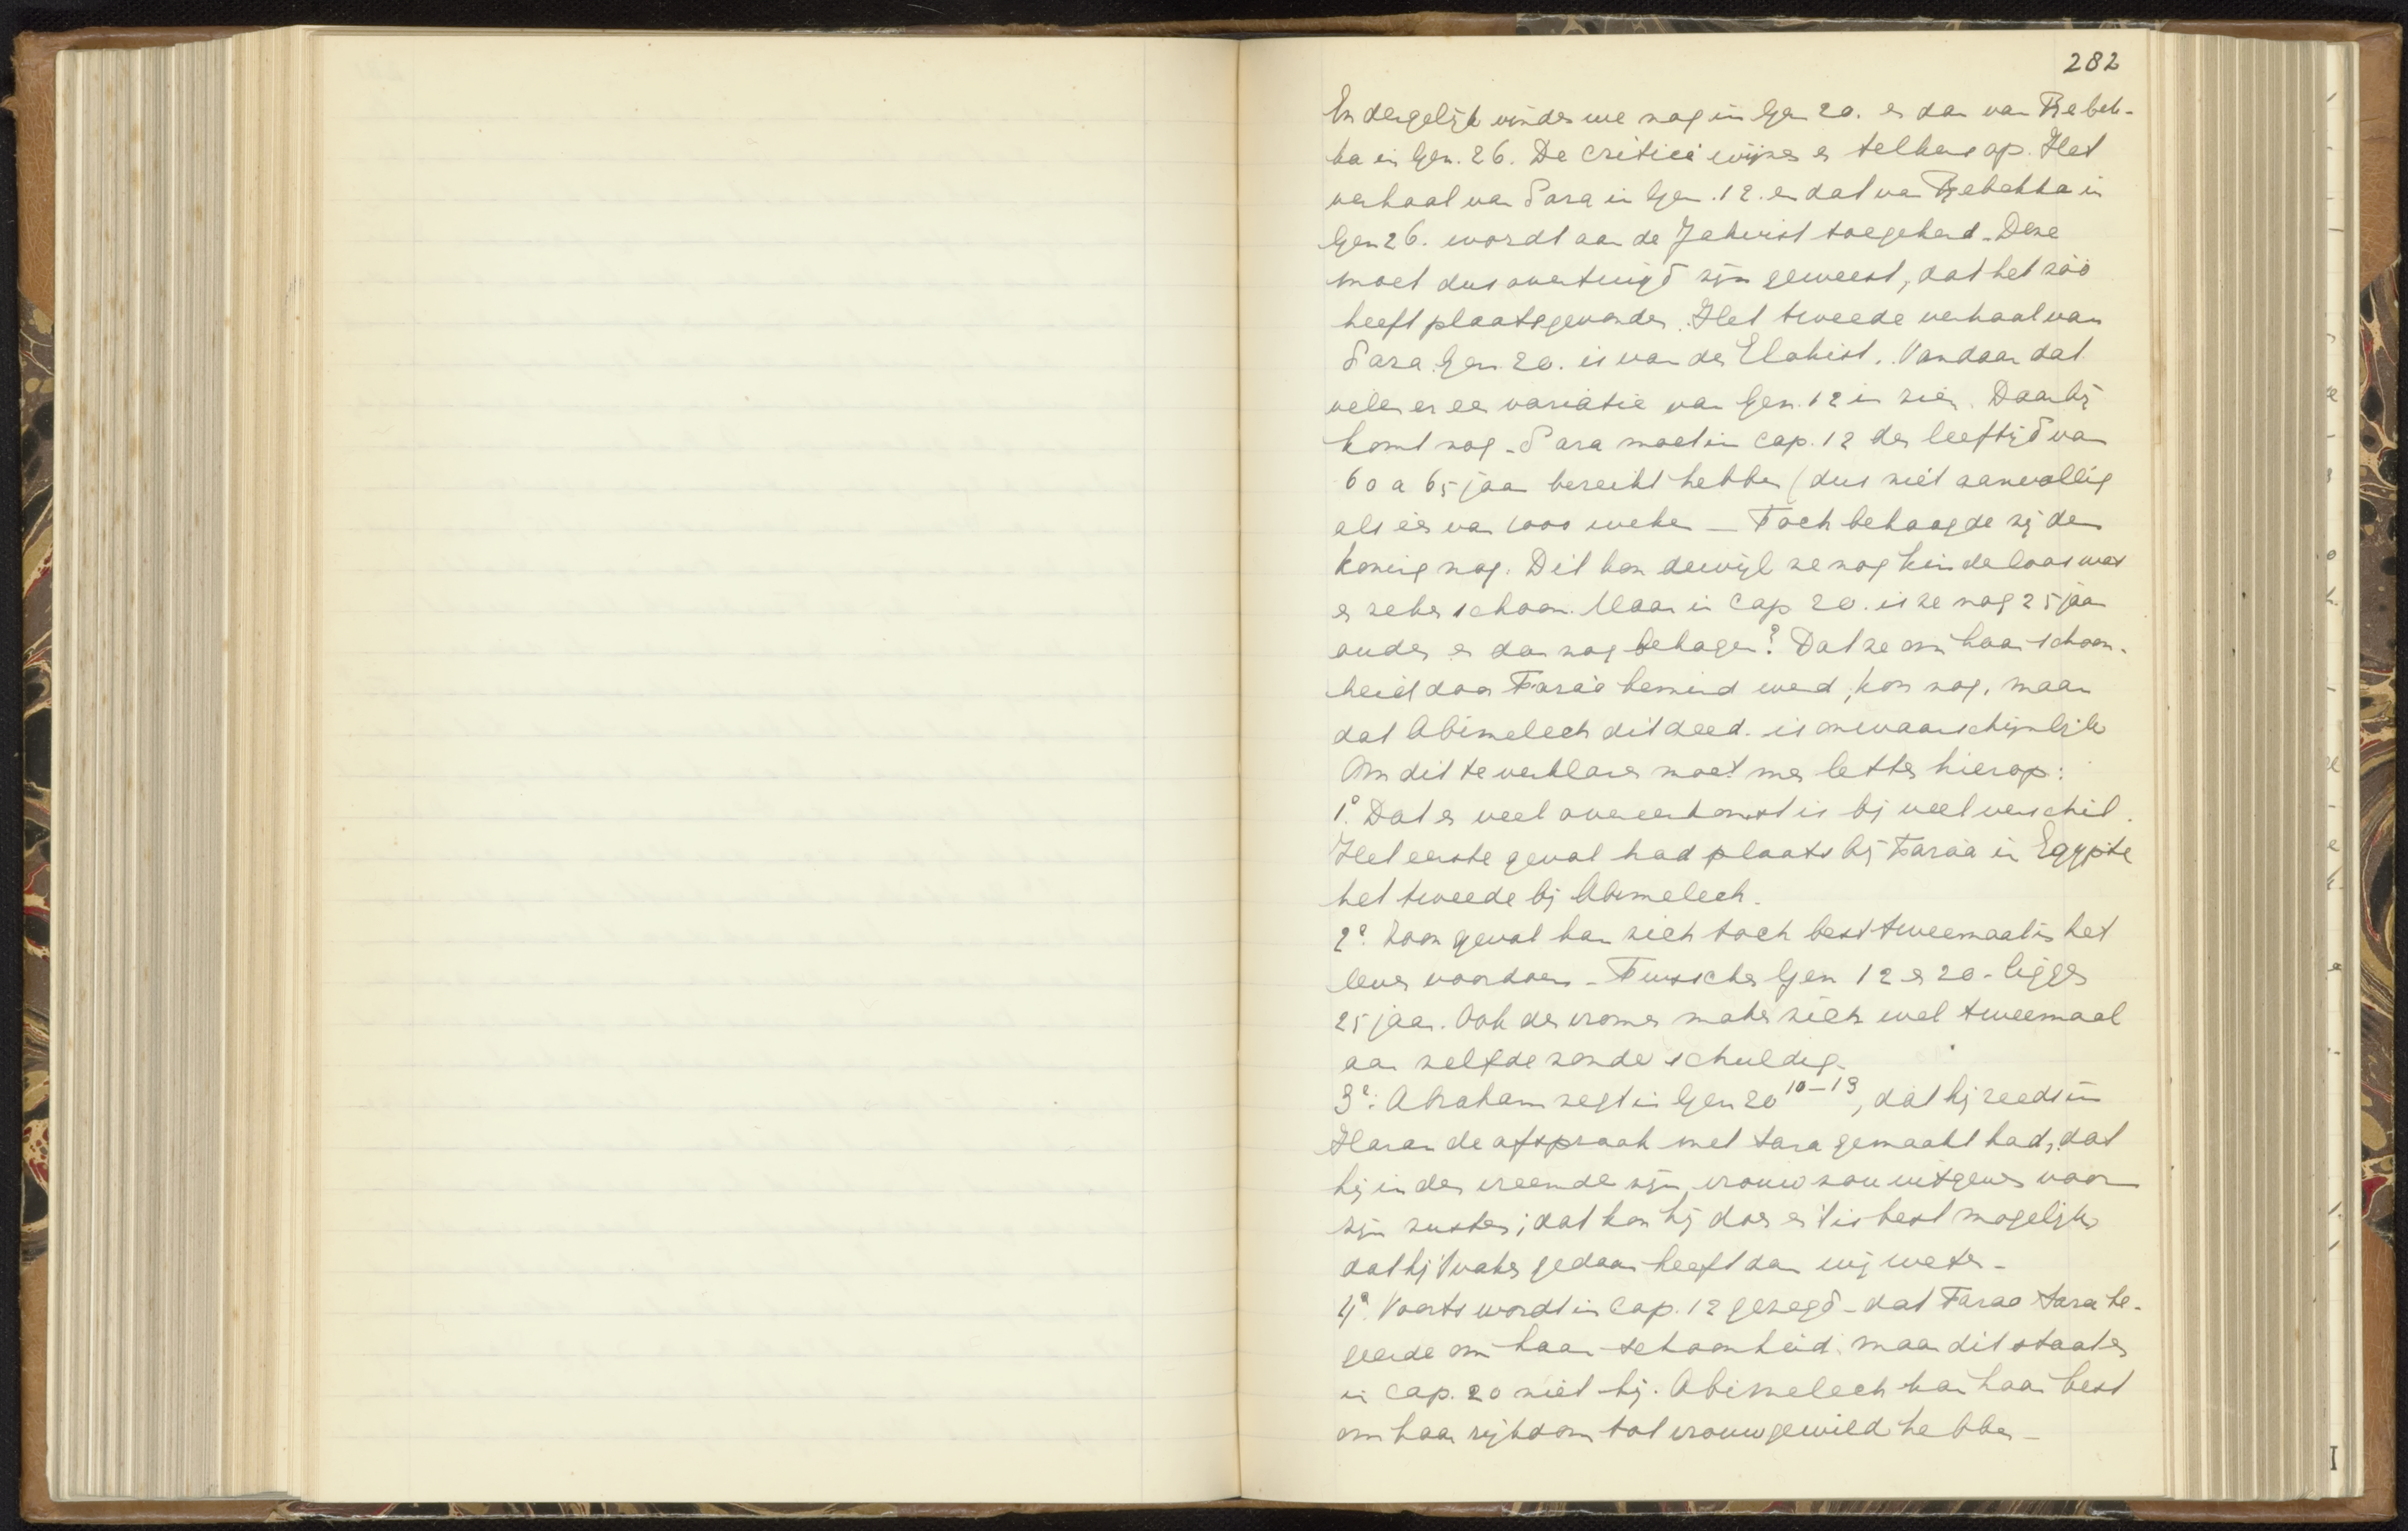 282
En dergelijk vinden we nog in Gen 20. en dan van Rebek-
ka in Gen. 26. De critici wijzen er telkens op. Het
verhaal van Sara in Gen. 12. en dat van Rebekka in
Gen 26. wordt aan de Jahvist toegekend. Deze
moet dus overtuigd zijn geweest, dat het zóó
heeft plaatsgevonden. Het tweede verhaal van
Sara Gen. 20. is van den Elohist. Vandaar dat
velen er een variatie van Gen. 12 in zien. Daarbij
komt nog - Sara moet in cap. 12 den leeftijd van
60 a 65 jaar bereikt hebben (dus niet aanvallig
als een van weken - Toch behaagde zij den
koning nog. Dit kon dewijl ze nog kinderloos was
en zeker schoon. Maar in Cap 20. is ze nog 25 jaar
ouder en dan nog behagen? Dat ze om haar schoon-
heid door Farao bemind werd, kon nog, maar
dat Abimelech dit deed. is onwaarschijnlijk
Om dit te verklaren moet men letten hierop:
1° Dat er veel overeenkomst is bij veel verschil.
Het eerste geval had plaats bij Farao in Egypte
het tweede bij Abimelech.
2° Zoon geval kan zich toch best tweemaal in het
leven voordoen - Tusschen Gen 12 en 20 - liggen
25 jaar. Ook de vromen maken zich wel tweemaal
aan zelfde zonde schuldig.
3°: Abraham zegt in Gen 20 10-13, dat hij reeds in
Haran de afspraak met Sara gemaakt had, dat
hij in den vreemde zijn vrouw zou uitgeven voor
zijn zuster; dat kon hij doen en 't is best mogelijk
dat hij 't vaker gedaan heeft dan wij weten -
4° Voorts wordt in Cap. 12 gezegd - dat Farao Sara be-
geerde om haar schoonheid. maar dit staat er
in cap. 20 niet bij. Abimelech kan haar best
om haar rijkdom tot vrouw gewild hebben -